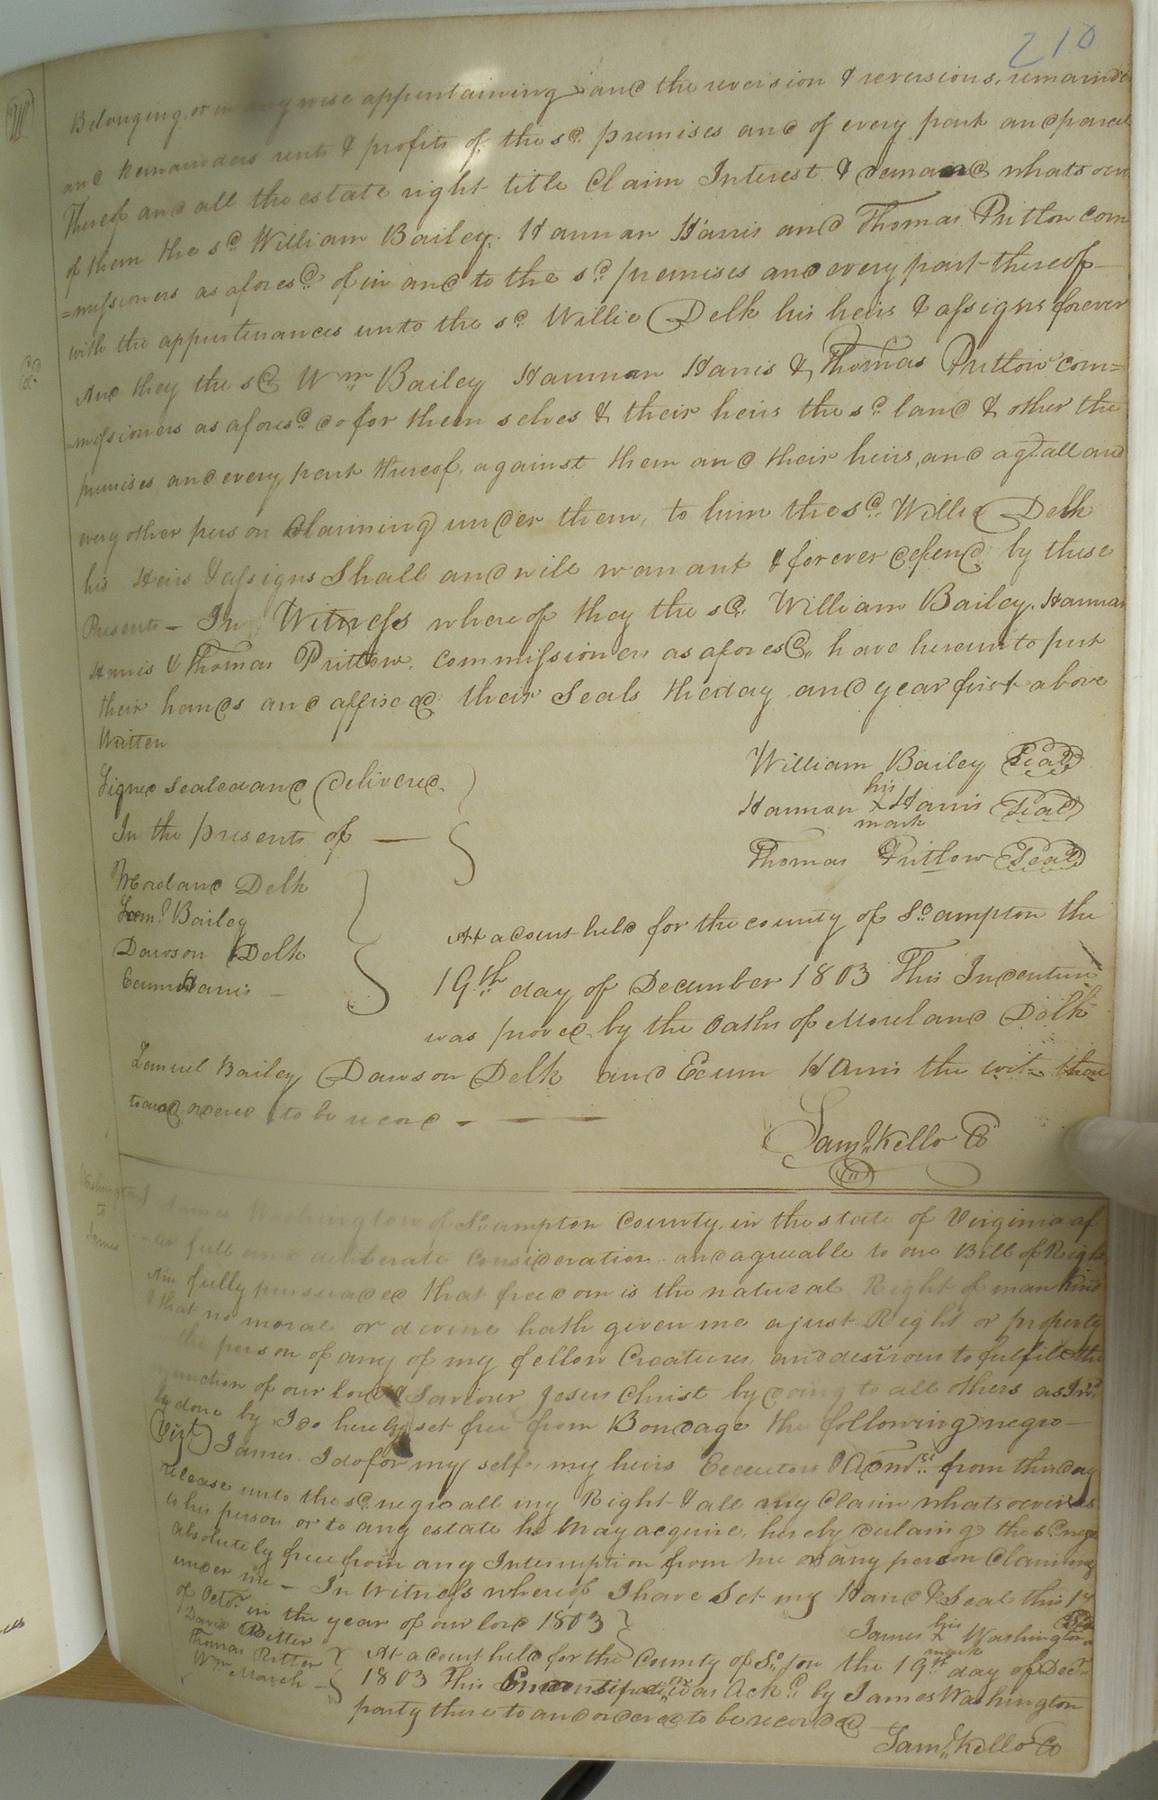 210
Belonging or in any wise appertaining and the revission & reversions, remainde
and Remainders rents & profits of the sd. premises and of every part and parcel
thereof and all the estate right title Claim Interest & demand whatsoever
of them the sd William Bailey. Hannan Harris and Thomas Pritlow com
=missioners as aforesd. of in and to the sd. premises and every part thereof
with the appurtenances unto the sd. Willie Delk his heirs & assigns forever
And they the sd. Wm Bailey Hannan Harris & Thomas Pritlow com=
=missioners as aforesd. do for them selves & their heirs the sd. land & other the
premises and every part thereof, against them and their heirs, and agt. all and
every other person Claiming under them, to him the sd. Willie Delk
his Heirs & assigns Shall and will warrant & forever defend by these
Presents - In Witness whereof they the sd. William Bailey. Hannan
Harris & Thomas Pritlow. Commissioners as aforesd. have hereunto put
their hands and affixed their Seals the day and year first above
Written
Signed Sealed and Delivered.
In the presents of —
William Bailey Seal
his
Hannan x Harris Seal
mark
Thomas Pritlow Seal
Moreland Delk
Leml. Bailey
Dawson Delk
Exum Harris -
At a Court held for the county of So.ampton the
19th day of December 1803 This Indenture
was proved by the Oaths of Moreland Delk
Lemuel Bailey Dawson Delk and Exum Harris the wit- there
to and ordered to be record - —
Saml. Kello C
Washington
to
James
I James Washington of So.ampton County in the state of Virginia af
-ter full and deliberate Consideration and agreeable to our Bill of Rights
Am fully pursuaded that freedom is the natural Right of man kind
& that no moral or divine hath given me a just Right or property
the person of any of my fellow Creatures, and desirous to fulfil the
injunction of our lord & Saviour Jesus Christ by doing to all others as I wd.
be done by I do hereby set free from Bondage the following negro
(Vizt) James. I do for my self, my heirs Executors & Admrs. from this day
release unto the sd. negro all my Right & all my Claim whatsoever as
to his person or to any estate he May acquire, hereby declaring the sd. negro
absolutely free from any Interruption from me or any person Claiming
under me - In Witness whereof I have Set my Hand & Seal this 17
of Octor. in the year of our lord 1803
his
James x Washington
mark
David Ritter
Thomas Ritter
Wm March
At a Court held for the County of So.ton the 19th day of Decr.
1803 This Emancipation was Ackd. by James Washington
party thereto and ordered to be recorded
Saml. Kello C